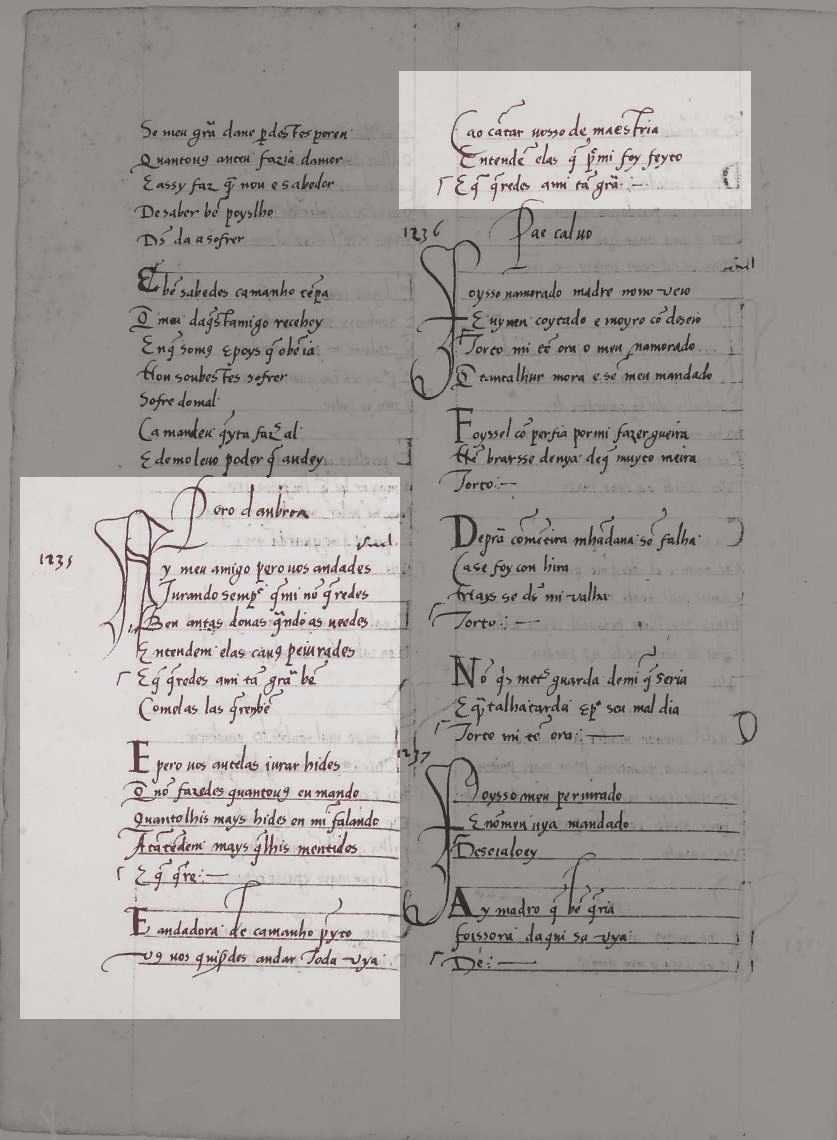 Se meu grã dane ꝑdestes peren
Quantouꝯ anceu fazia damor
E assy faz q̃ nou e sabedor
De saber bẽ poyslho
Ds̃ da a sofrer
E bẽ sabedes camanho tẽpa
Q̃ meu daq̃stamigo recebey
En q̃ somꝯ e poys q̃ obẽia
Non soubestes sofrer
Sofre do mal
Ca mandeu q̃yta faz̃ al
E demo levo poder q̃ andey
Pero danbroa
1235
Ay meu amigo ꝑo uos andades
Jurando sempr̃ q̃ mi nõ q̃redes
Ben antas donas q̃ndo as ueedes
Entendem elas cauꝯ peiurades
E q̃ q̃redes a mi tã grã bẽ
Comelas las q̃renbẽ
E pero uos antelas iurar hides
Q̃ nõ fazedes quantouꝯ eu mando
Quantolhis mays hides en mi falando
Atãtẽdem mays q̃ lhis mentides
E q̃ q̃re: —
E andadora de camanho p̃yto
uꝯ uos quiꝑdes andar Toda uya
Ca o cãtar uosso de maestria
Entendẽ elas q̃ p̃ mi foy feyto
E q̃ q̃redes a mi tã grã: —
1236
Pae caluo
Foysso namorado madre nono ueio
E uyuen coytado e moyro cõ deseio
Torto mi tẽ ora o meu namorado
Q̃ tantalhur mora e sẽ meu mandado
Foyssel cõ perfia por mi fazer gueira
Nẽ brarsse deuya de q̃ muyto meira
Torto: —
De prã cõmẽtira mhãdaua sẽ falha
Ca se foy con hira
Mays se ds̃ mi valha
Torto: —
Nõ q̃s metr̃ guarda de mi q̃ seria
E q̃talhatarda e pr̃ seu mal dia
Torto mi tẽ ora: —
1237
Foysso meu periurado
E nõmen uya mandado
Deseialoey
Ay madre q̃ bẽ q̃ria
foissora daqui su uya
De: —